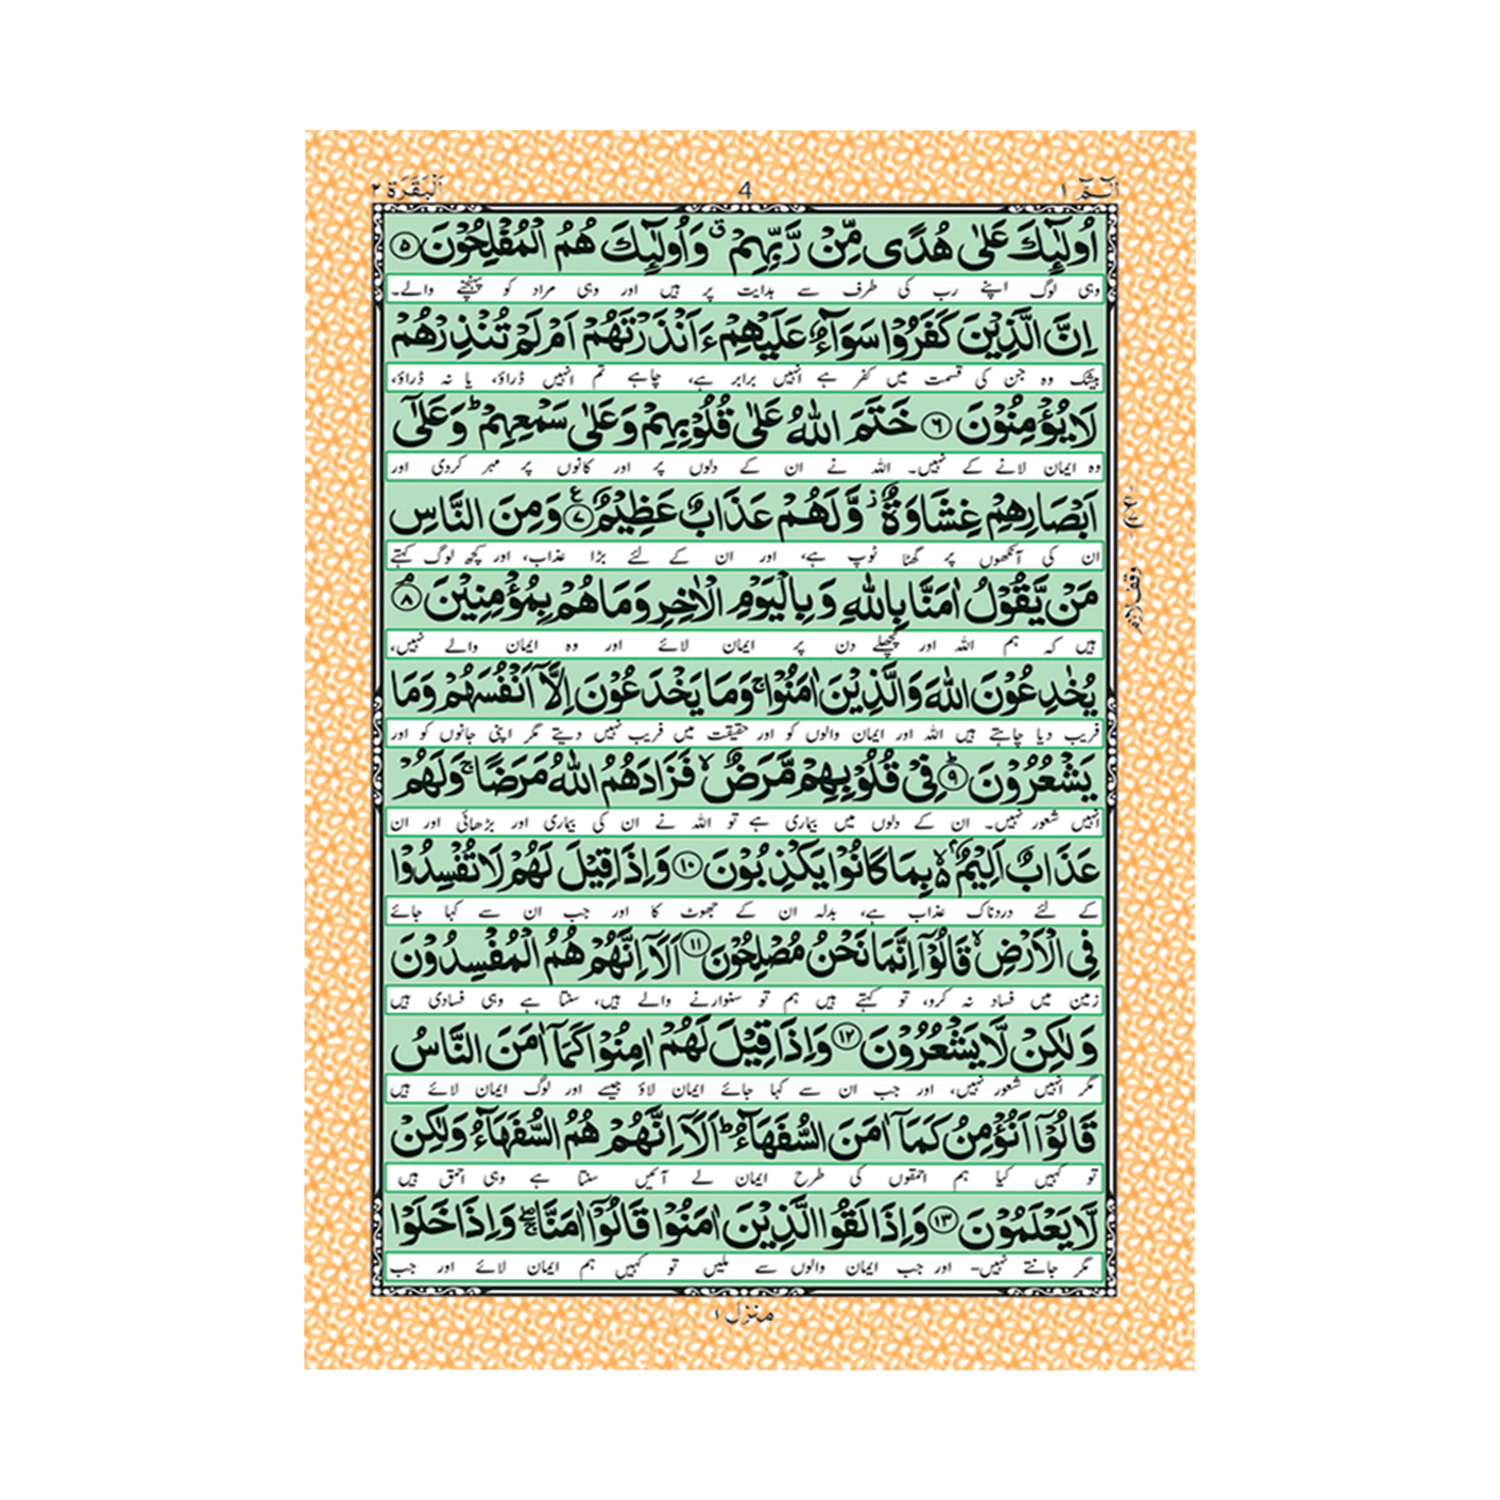 الٓمّٓ ۱
4
اَلْبَقَرَة ۲
اُولٰٓئِكَ عَلٰى هُدًى مِّنْ رَّبِّهِمْ ۗ وَاُولٰٓئِكَ هُمُ الْمُفْلِحُوْنَ ۵
وہی لوگ اپنے رب کی طرف سے ہدایت پر ہیں اور وہی مراد کو پہنچنے والے۔
اِنَّ الَّذِيْنَ كَفَرُوْا سَوَآءٌ عَلَيْهِمْ ءَاَنْذَرْتَهُمْ اَمْ لَمْ تُنْذِرْهُمْ
بیشک وہ جن کی قسمت میں کفر ہے انہیں برابر ہے، چاہے تم انہیں ڈراؤ، یا نہ ڈراؤ،
لَا يُؤْمِنُوْنَ ۶ خَتَمَ اللّٰهُ عَلٰى قُلُوْبِهِمْ وَعَلٰى سَمْعِهِمْ ؕ وَعَلٰٓى
وہ ایمان لانے کے نہیں۔ اللہ نے ان کے دلوں پر اور کانوں پر مہر کردی اور
اَبْصَارِهِمْ غِشَاوَةٌ ز وَّلَهُمْ عَذَابٌ عَظِيْمٌ ۷ ع وَمِنَ النَّاسِ
ان کی آنکھوں پر گھٹا ٹوپ ہے، اور ان کے لئے بڑا عذاب، اور کچھ لوگ کہتے
مَنْ يَّقُوْلُ اٰمَنَّا بِاللّٰهِ وَبِالْيَوْمِ الْاٰخِرِ وَمَا هُمْ بِمُؤْمِنِيْنَ ۘ ۸
وقف لازم
ہیں کہ ہم اللہ اور پچھلے دن پر ایمان لائے اور وہ ایمان والے نہیں،
يُخٰدِعُوْنَ اللّٰهَ وَالَّذِيْنَ اٰمَنُوْا ۚ وَمَا يَخْدَعُوْنَ اِلَّآ اَنْفُسَهُمْ وَمَا
فریب دیا چاہتے ہیں اللہ اور ایمان والوں کو اور حقیقت میں فریب نہیں دیتے مگر اپنی جانوں کو اور
يَشْعُرُوْنَ ؕ ۹ فِيْ قُلُوْبِهِمْ مَّرَضٌ ۙ فَزَادَهُمُ اللّٰهُ مَرَضًا ۚ وَلَهُمْ
انہیں شعور نہیں۔ ان کے دلوں میں بیماری ہے تو اللہ نے ان کی بیماری اور بڑھائی اور ان
عَذَابٌ اَلِيْمٌ ۙ۬ بِمَا كَانُوْا يَكْذِبُوْنَ ۱۰ وَاِذَا قِيْلَ لَهُمْ لَا تُفْسِدُوْا
کے لئے دردناک عذاب ہے، بدلہ ان کے جھوٹ کا اور جب ان سے کہا جائے
فِي الْاَرْضِ ۙ قَالُوْٓا اِنَّمَا نَحْنُ مُصْلِحُوْنَ ۱۱ اَلَآ اِنَّهُمْ هُمُ الْمُفْسِدُوْنَ
زمین میں فساد نہ کرو، تو کہتے ہیں ہم تو سنوارنے والے ہیں، سنتا ہے وہی فسادی ہیں
وَلٰكِنْ لَّا يَشْعُرُوْنَ ۱۲ وَاِذَا قِيْلَ لَهُمْ اٰمِنُوْا كَمَآ اٰمَنَ النَّاسُ
مگر انہیں شعور نہیں، اور جب ان سے کہا جائے ایمان لاؤ جیسے اور لوگ ایمان لائے ہیں
قَالُوْٓا اَنُؤْمِنُ كَمَآ اٰمَنَ السُّفَهَآءُ ؕ اَلَآ اِنَّهُمْ هُمُ السُّفَهَآءُ وَلٰكِنْ
تو کہیں کیا ہم احمقوں کی طرح ایمان لے آئیں سنتا ہے وہی احمق ہیں
لَّا يَعْلَمُوْنَ ۱۳ وَاِذَا لَقُوا الَّذِيْنَ اٰمَنُوْا قَالُوْٓا اٰمَنَّا ۖۚ وَاِذَا خَلَوْا
مگر جانتے نہیں- اور جب ایمان والوں سے ملیں تو کہیں ہم ایمان لائے اور جب
منزل ۱